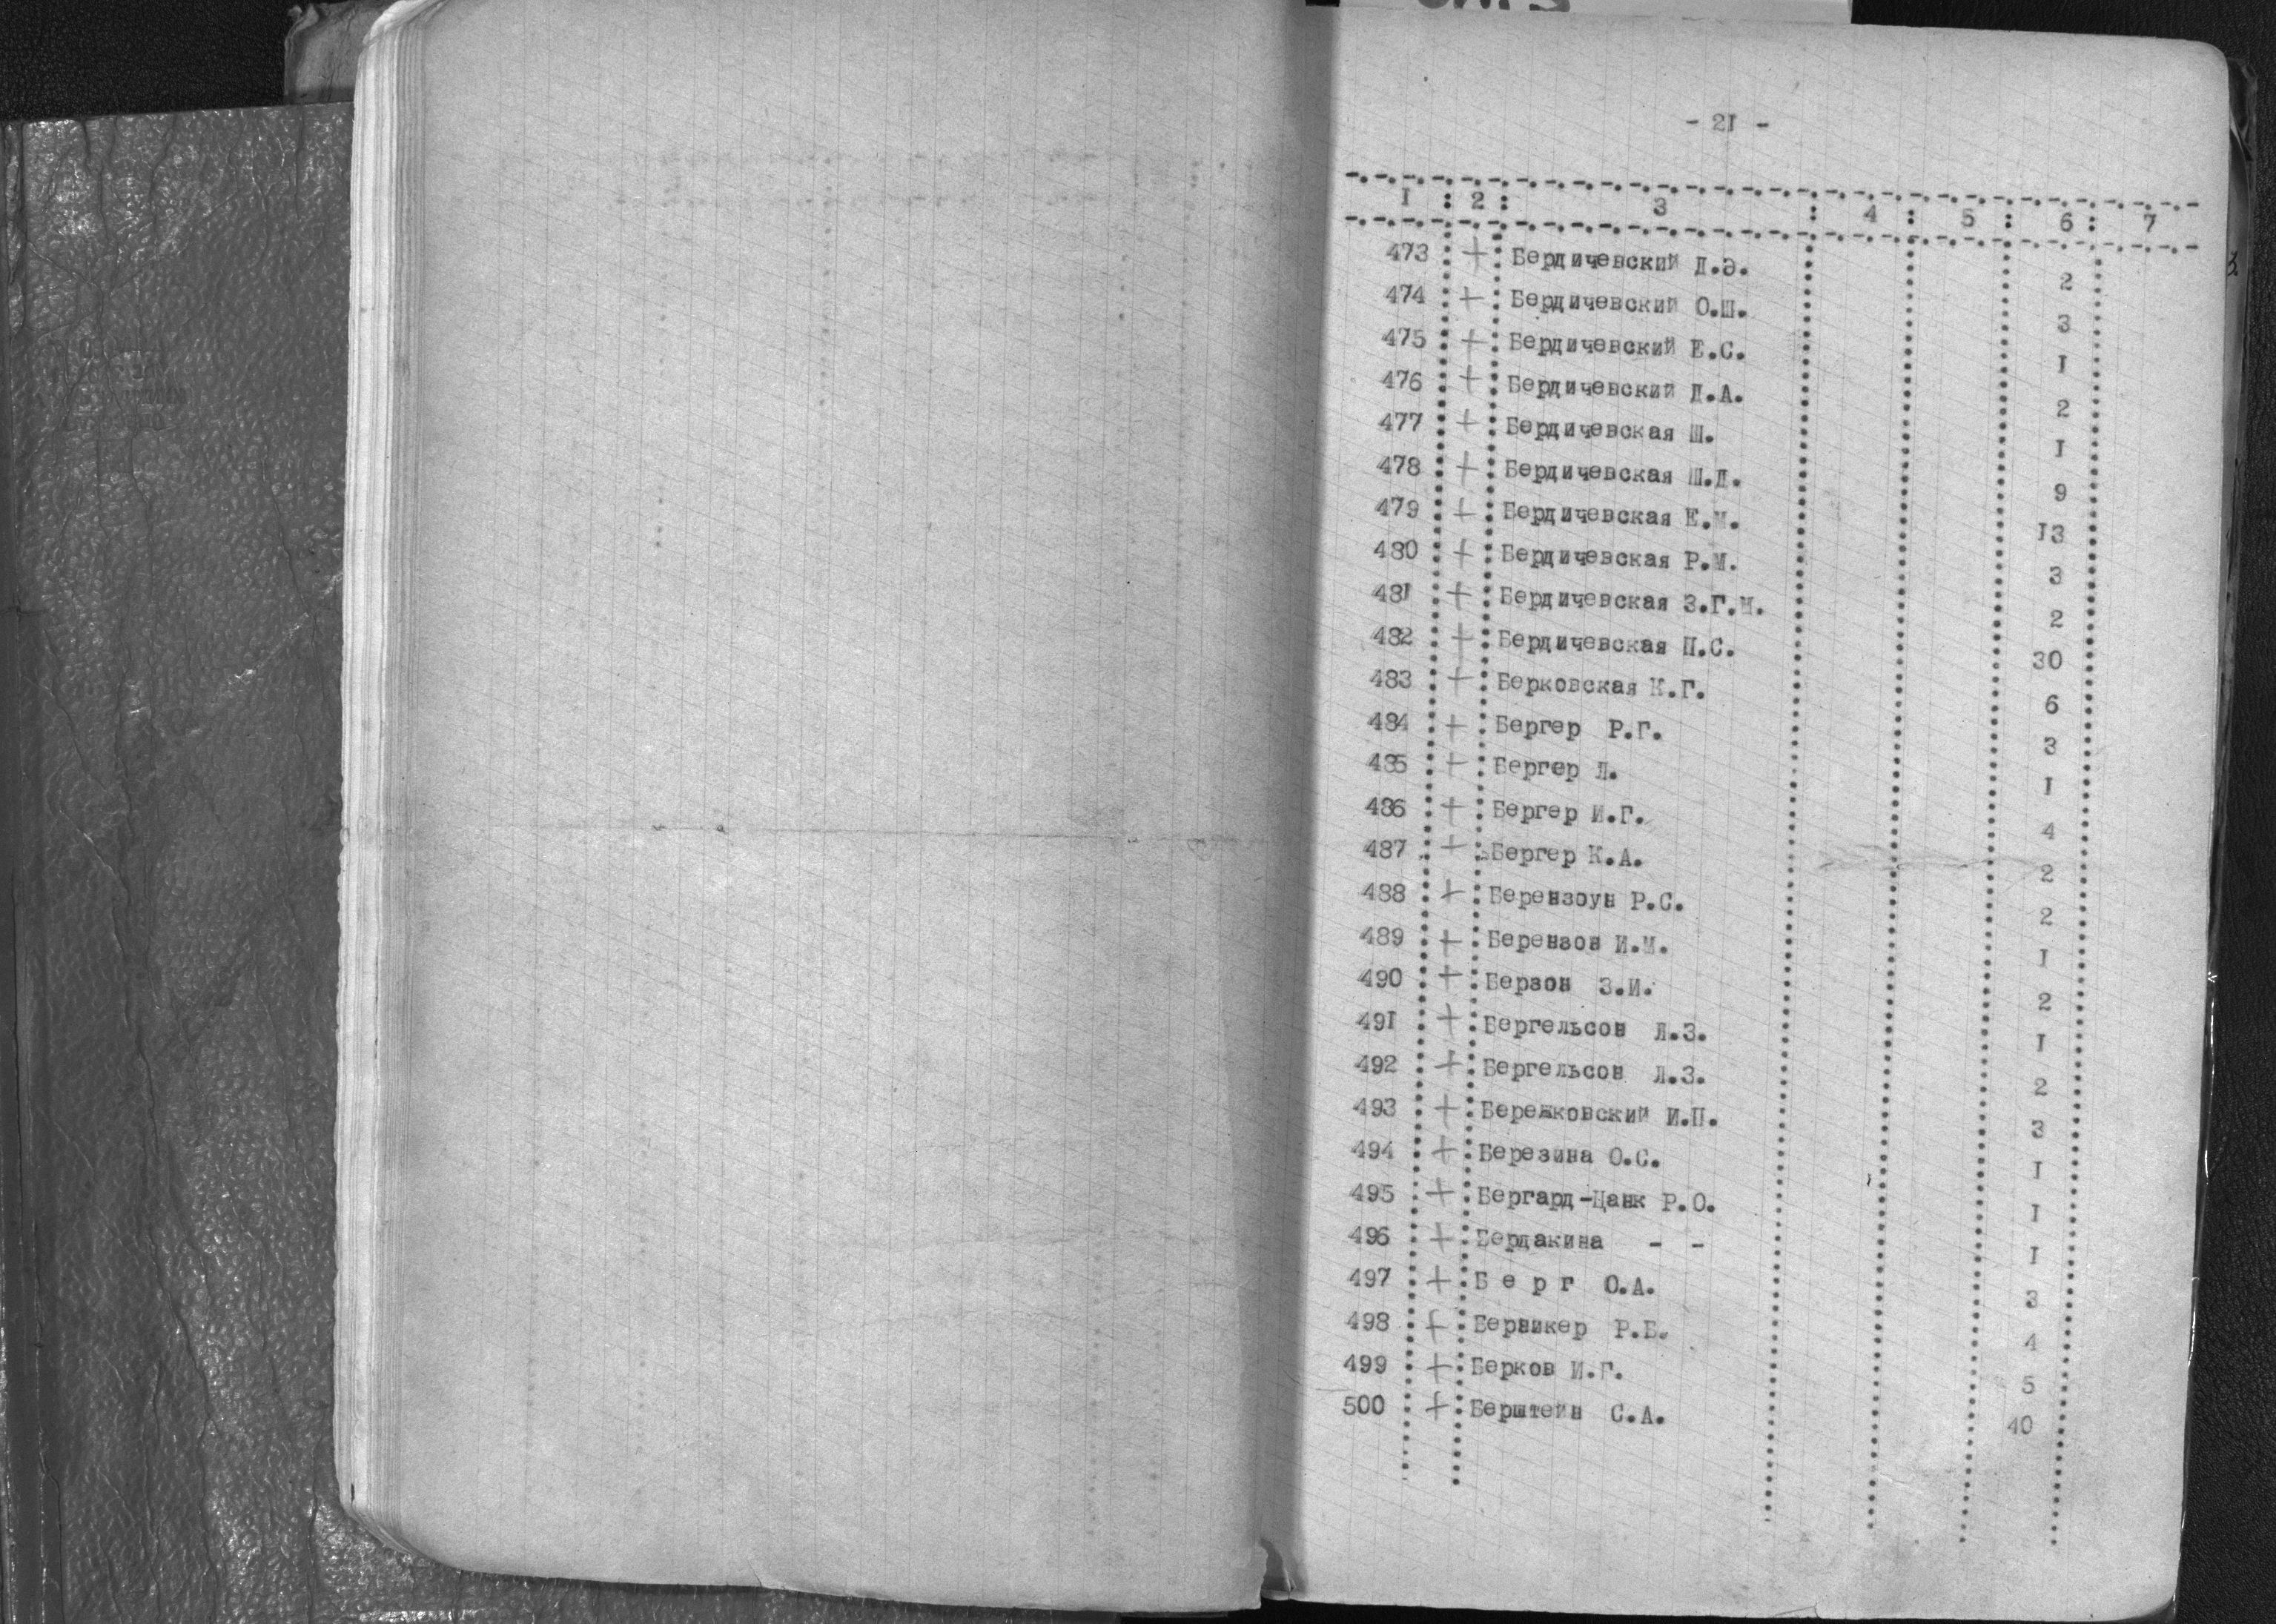 - 2I -
I : 2 : 3 : 4 : 5 : 6 : 7
473 + Бердичевский Д.Э. 2
474 + Бердичевский О.Ш. 3
475 + Бердичевский Е.С. I
476 + Бердичевский Д.А. 2
477 + Бердичевская Ш. I
478 + Бердичевская Ш.Д. 9
479 + Бердичевская Е.М. I3
480 + Бердичевская Р.М. 3
48I + Бердичевская З.Г.М. 2
482 + Бердичевская П.С. 30
483 + Берковская К.Г. 6
484 + Бергер Р.Г. 3
485 + Бергер Л. I
486 + Бергер И.Г. 4
487 + Бергер К.А. 2
488 + Берензоун Р.С. 2
489 + Берензон И.М. I
490 + Берзон З.И. 2
49I + Бергельсон Л.З. I
492 + Бергельсон Л.З. 2
493 + Бережковский И.П. 3
494 + Березина О.С. I
495 + Бергард-Цанк Р.О. I
496 + Бердакина - - I
497 + Б е р г О.А. 3
498 + Берникер Р.Б. 4
499 + Берков И.Г. 5
500 + Берштейн С.А. 40